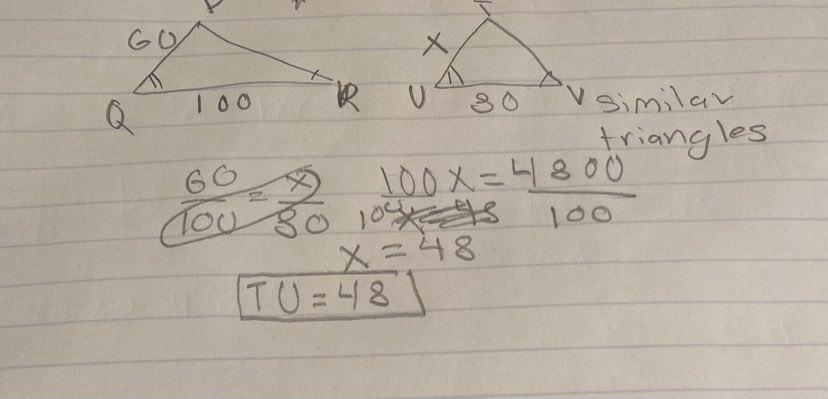 60 X
Q 100 R U 80 V similar
triangles
60/100 = x/80 100x/100 = 4800/100
x = 48
TU = 48